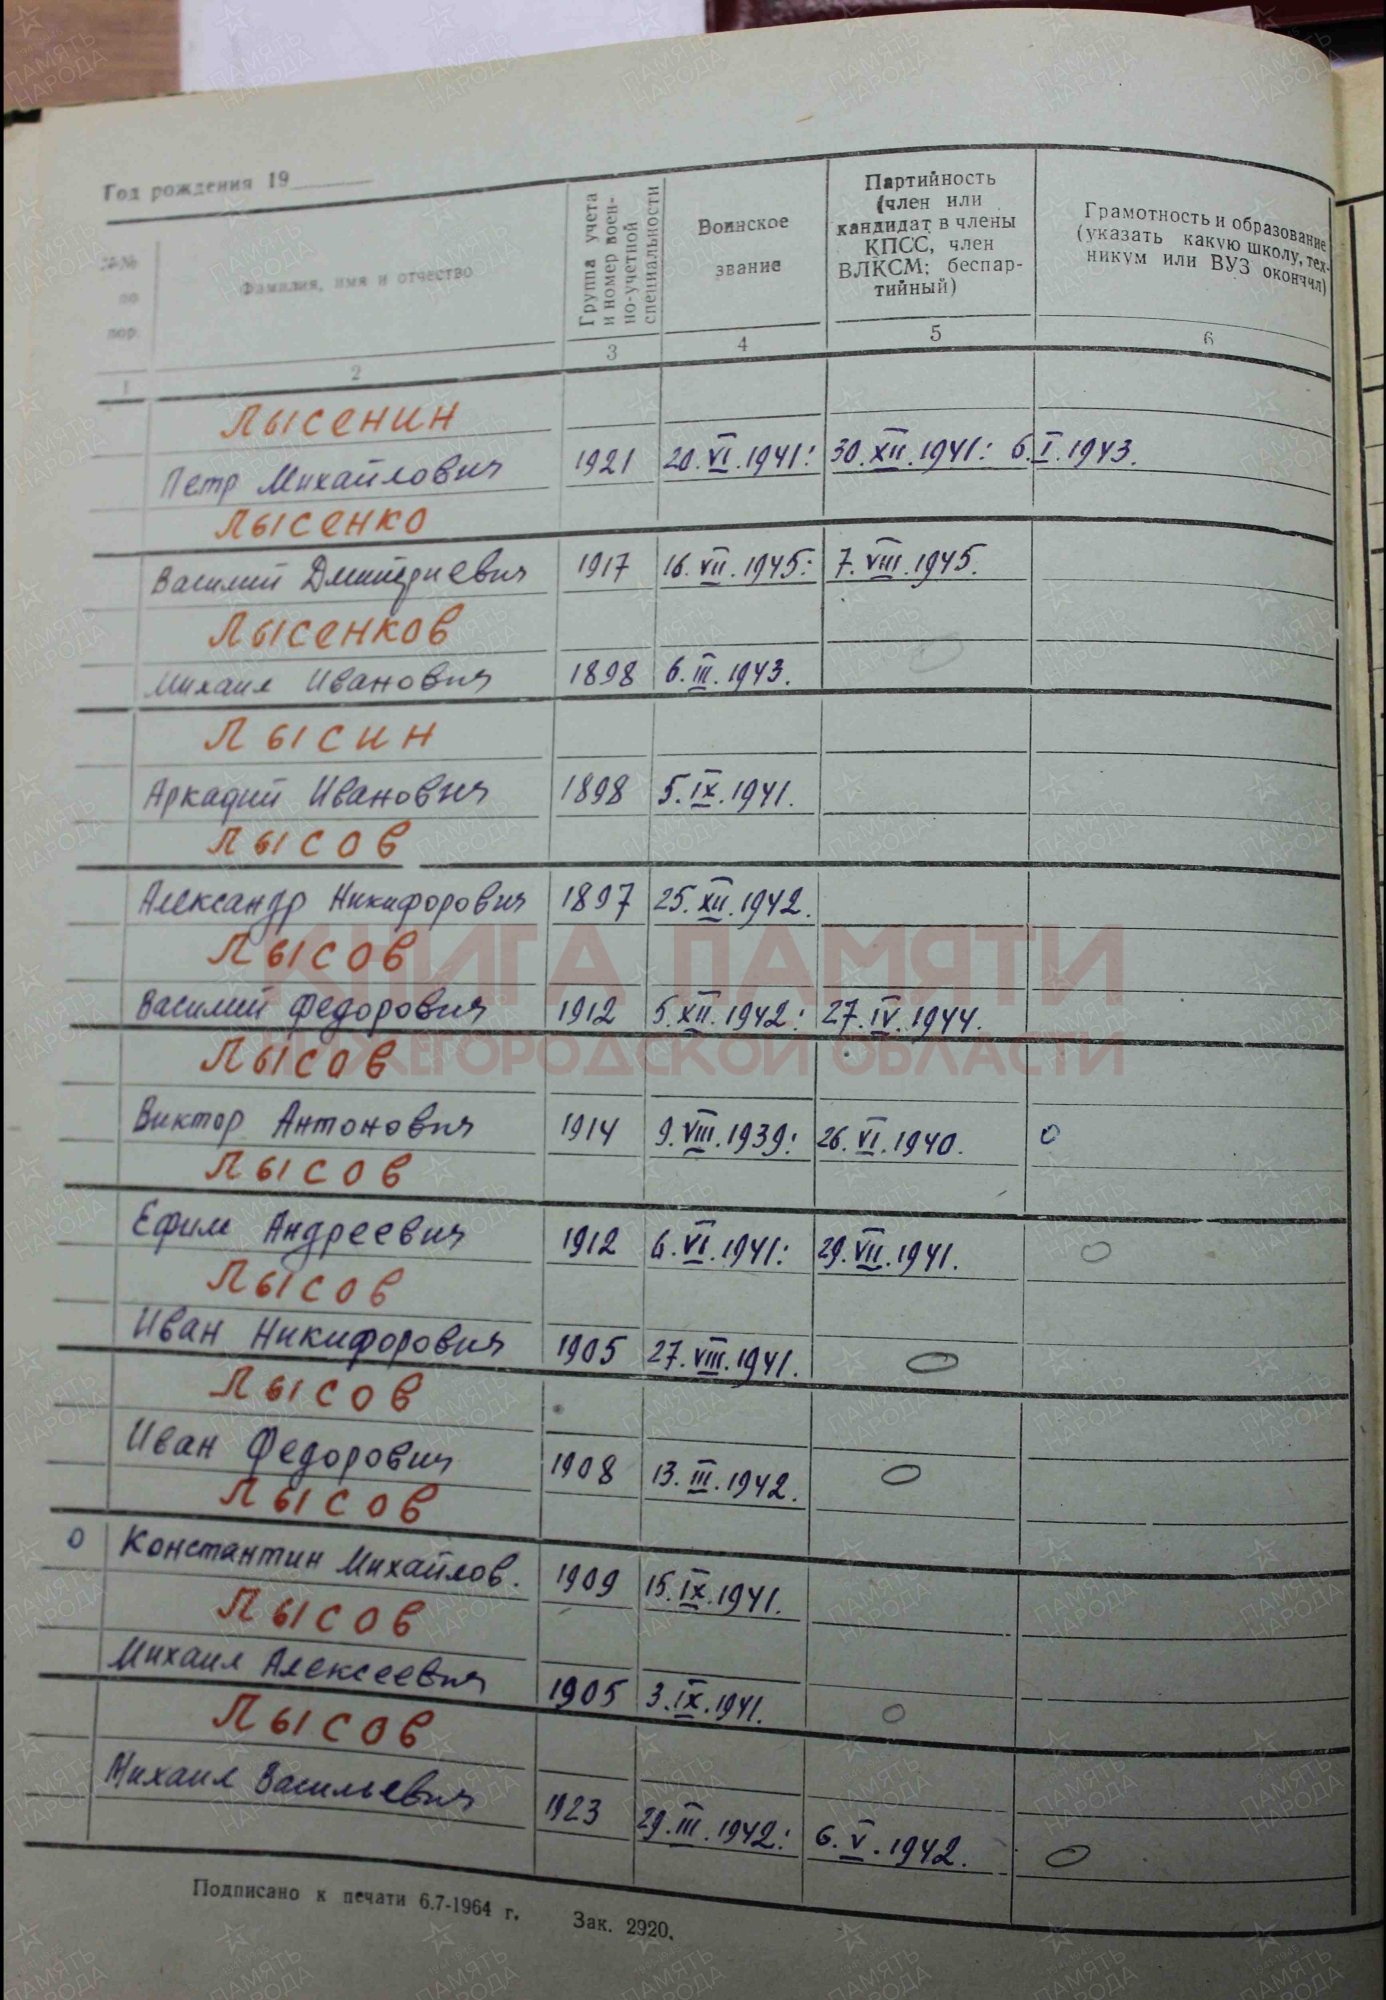 Год рождения 19
№№ по пор.
Фамилия, имя и отчество
Группа учета и номер воен-но-учетной специальности
Воинское звание
Партийность (член или кандидат в члены КПСС, член ВЛКСМ; беспар-тийный)
Грамотность и образование (указать какую школу, тех-никум или ВУЗ окончил)
1 2 3 4 5 6
Лысенин
Петр Михайлович 1921 20.VI.1941: 30.XII.1941: 6.I.1943.
Лысенко
Василий Дмитриевич 1917 16.VII.1945: 7.VIII.1945.
Лысенков
Михаил Иванович 1898 6.III.1943.
Лысин
Аркадий Иванович 1898 5.IX.1941.
Лысов
Александр Никифорович 1897 25.XII.1942.
Лысов
Василий Федорович 1912 5.XII.1942: 27.IV.1944.
КНИГА ПАМЯТИ
НИЖЕГОРОДСКОЙ ОБЛАСТИ
Лысов
Виктор Антонович 1914 9.VIII.1939: 26.VI.1940. 0
Лысов
Ефим Андреевич 1912 6.VI.1941: 29.VII.1941. 0
Лысов
Иван Никифорович 1905 27.VIII.1941. 0
Лысов
Иван Федорович 1908 13.III.1942. 0
Лысов
0 Константин Михайлов. 1909 15.IX.1941.
Лысов
Михаил Алексеевич 1905 3.IX.1941. 0
Лысов
Михаил Васильевич 1923 29.III.1942: 6.V.1942. 0
Подписано к печати 6.7-1964 г. Зак. 2920.
ПАМЯТЬ НАРОДА